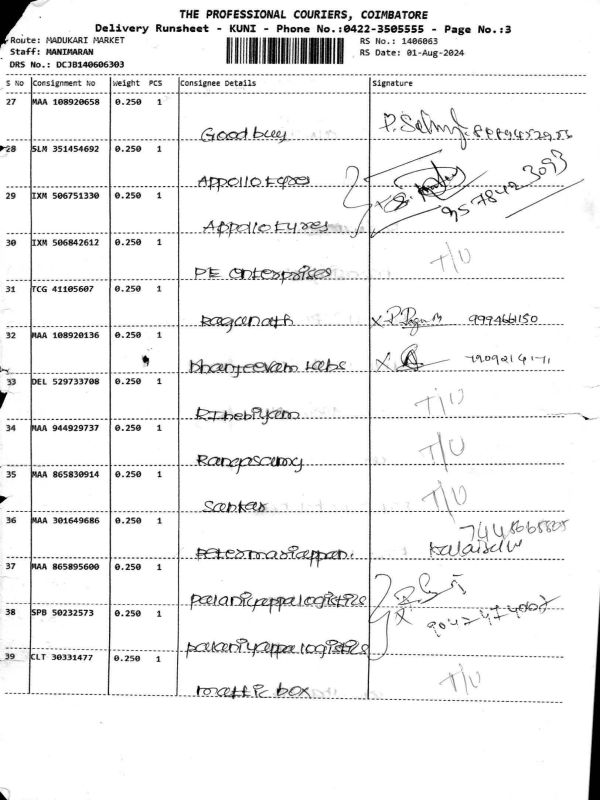 THE PROFESSIONAL COURIERS, COIMBATORE
Delivery Runsheet - KUNI - Phone No.:0422-3505555 - Page No.:3
Route: MADUKARI MARKET RS No.: 1406063
Staff: MANIMARAN RS Date: 01-Aug-2024
DRS No.: DCJB140606303
S No Consignment No Weight PCS Consignee Details Signature
27 MAA 108920658 0.250 1
Goodbuy
28 SLM 351454692 0.250 1
Appollo tyres
9578423093
29 IXM 506751330 0.250 1
Appollo tyres
30 IXM 506842612 0.250 1 T/U
PE enterprises
31 TCG 41105607 0.250 1
Raganath 999466150
32 MAA 108920136 0.250 1
33 DEL 529733708 0.250 1 T/U
34 MAA 944929737 0.250 1 T/U
Rangasamy
35 MAA 865830914 0.250 1 T/U
Sankar
36 MAA 301649686 0.250 1
Petermariappan.
37 MAA 865895600 0.250 1
palaniyappa logistics
38 SPB 50232573 0.250 1
palaniyappa logistics
39 CLT 30331477 0.250 1 T/U
maffic box